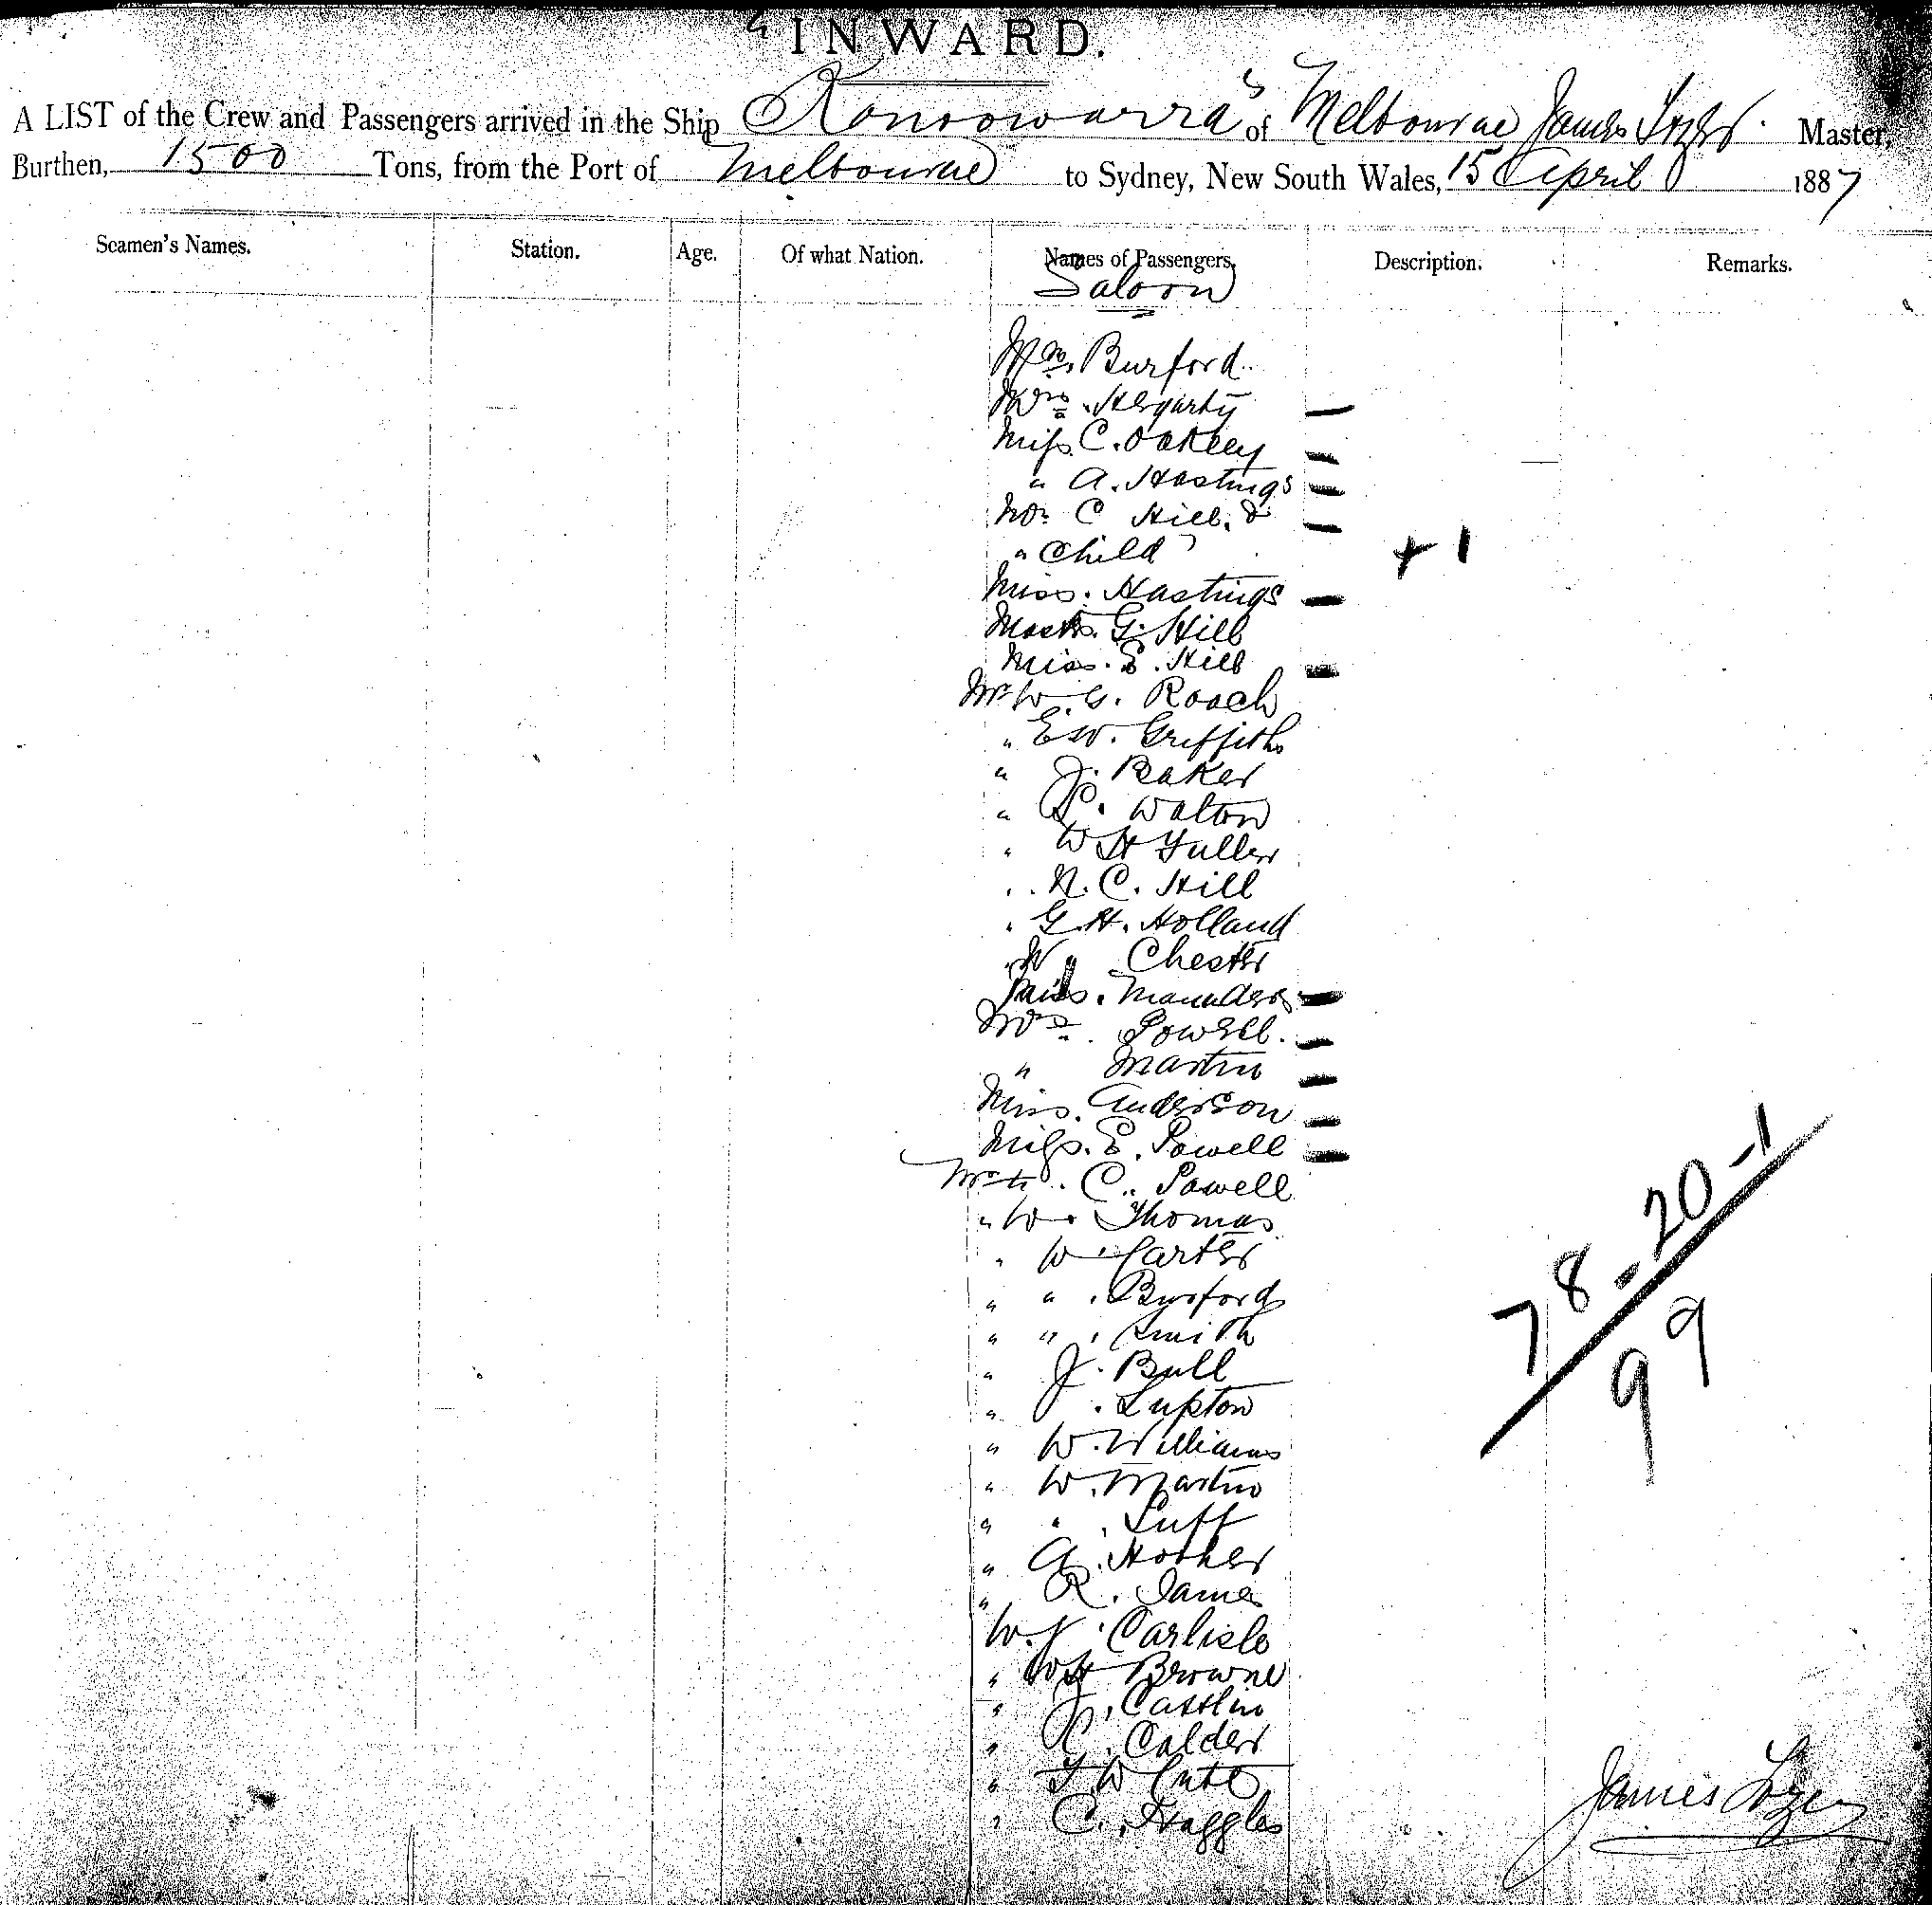 "INWARD.
A LIST of the Crew and Passengers arrived in the Ship "Konoowarra" of Melbourne James Lozer Master,
Burthen, 1500 Tons, from the Port of Melbourne to Sydney, New South Wales, 15 April 1887
Seamen's Names. Station. Age. Of what Nation. Names of Passengers. Description. Remarks.
Saloon
Burford
Mrs. Hegarty
Miss C. Oakley
" A. Hastings
Mrs C Hill &
" Child + 1
Miss. Hastings
Mastr. G. Hill
Miss. E. Hill
Mr W. G. Roach
" E W. Griffiths
" J. Baker
" P. Walton
" W H Fuller
" N. C. Hill
" G. H. Holland
" W. Chester
Miss. Maunders
Mrs. Powell.
" Martin
Miss. Anderson
Miss. E. Powell
C. Powell
" W. Thomas
" W. Carter
" " . Burford
" " . Smith
" J. Bull
" . Lupton
" W. Williams
" W. Martin
" " . Luff
" A. Hooker
" R. James
W. J. Carlisle
" W H Browne
" J.
" Calder
" T W
" C.
78-20-1
99
James Lozer